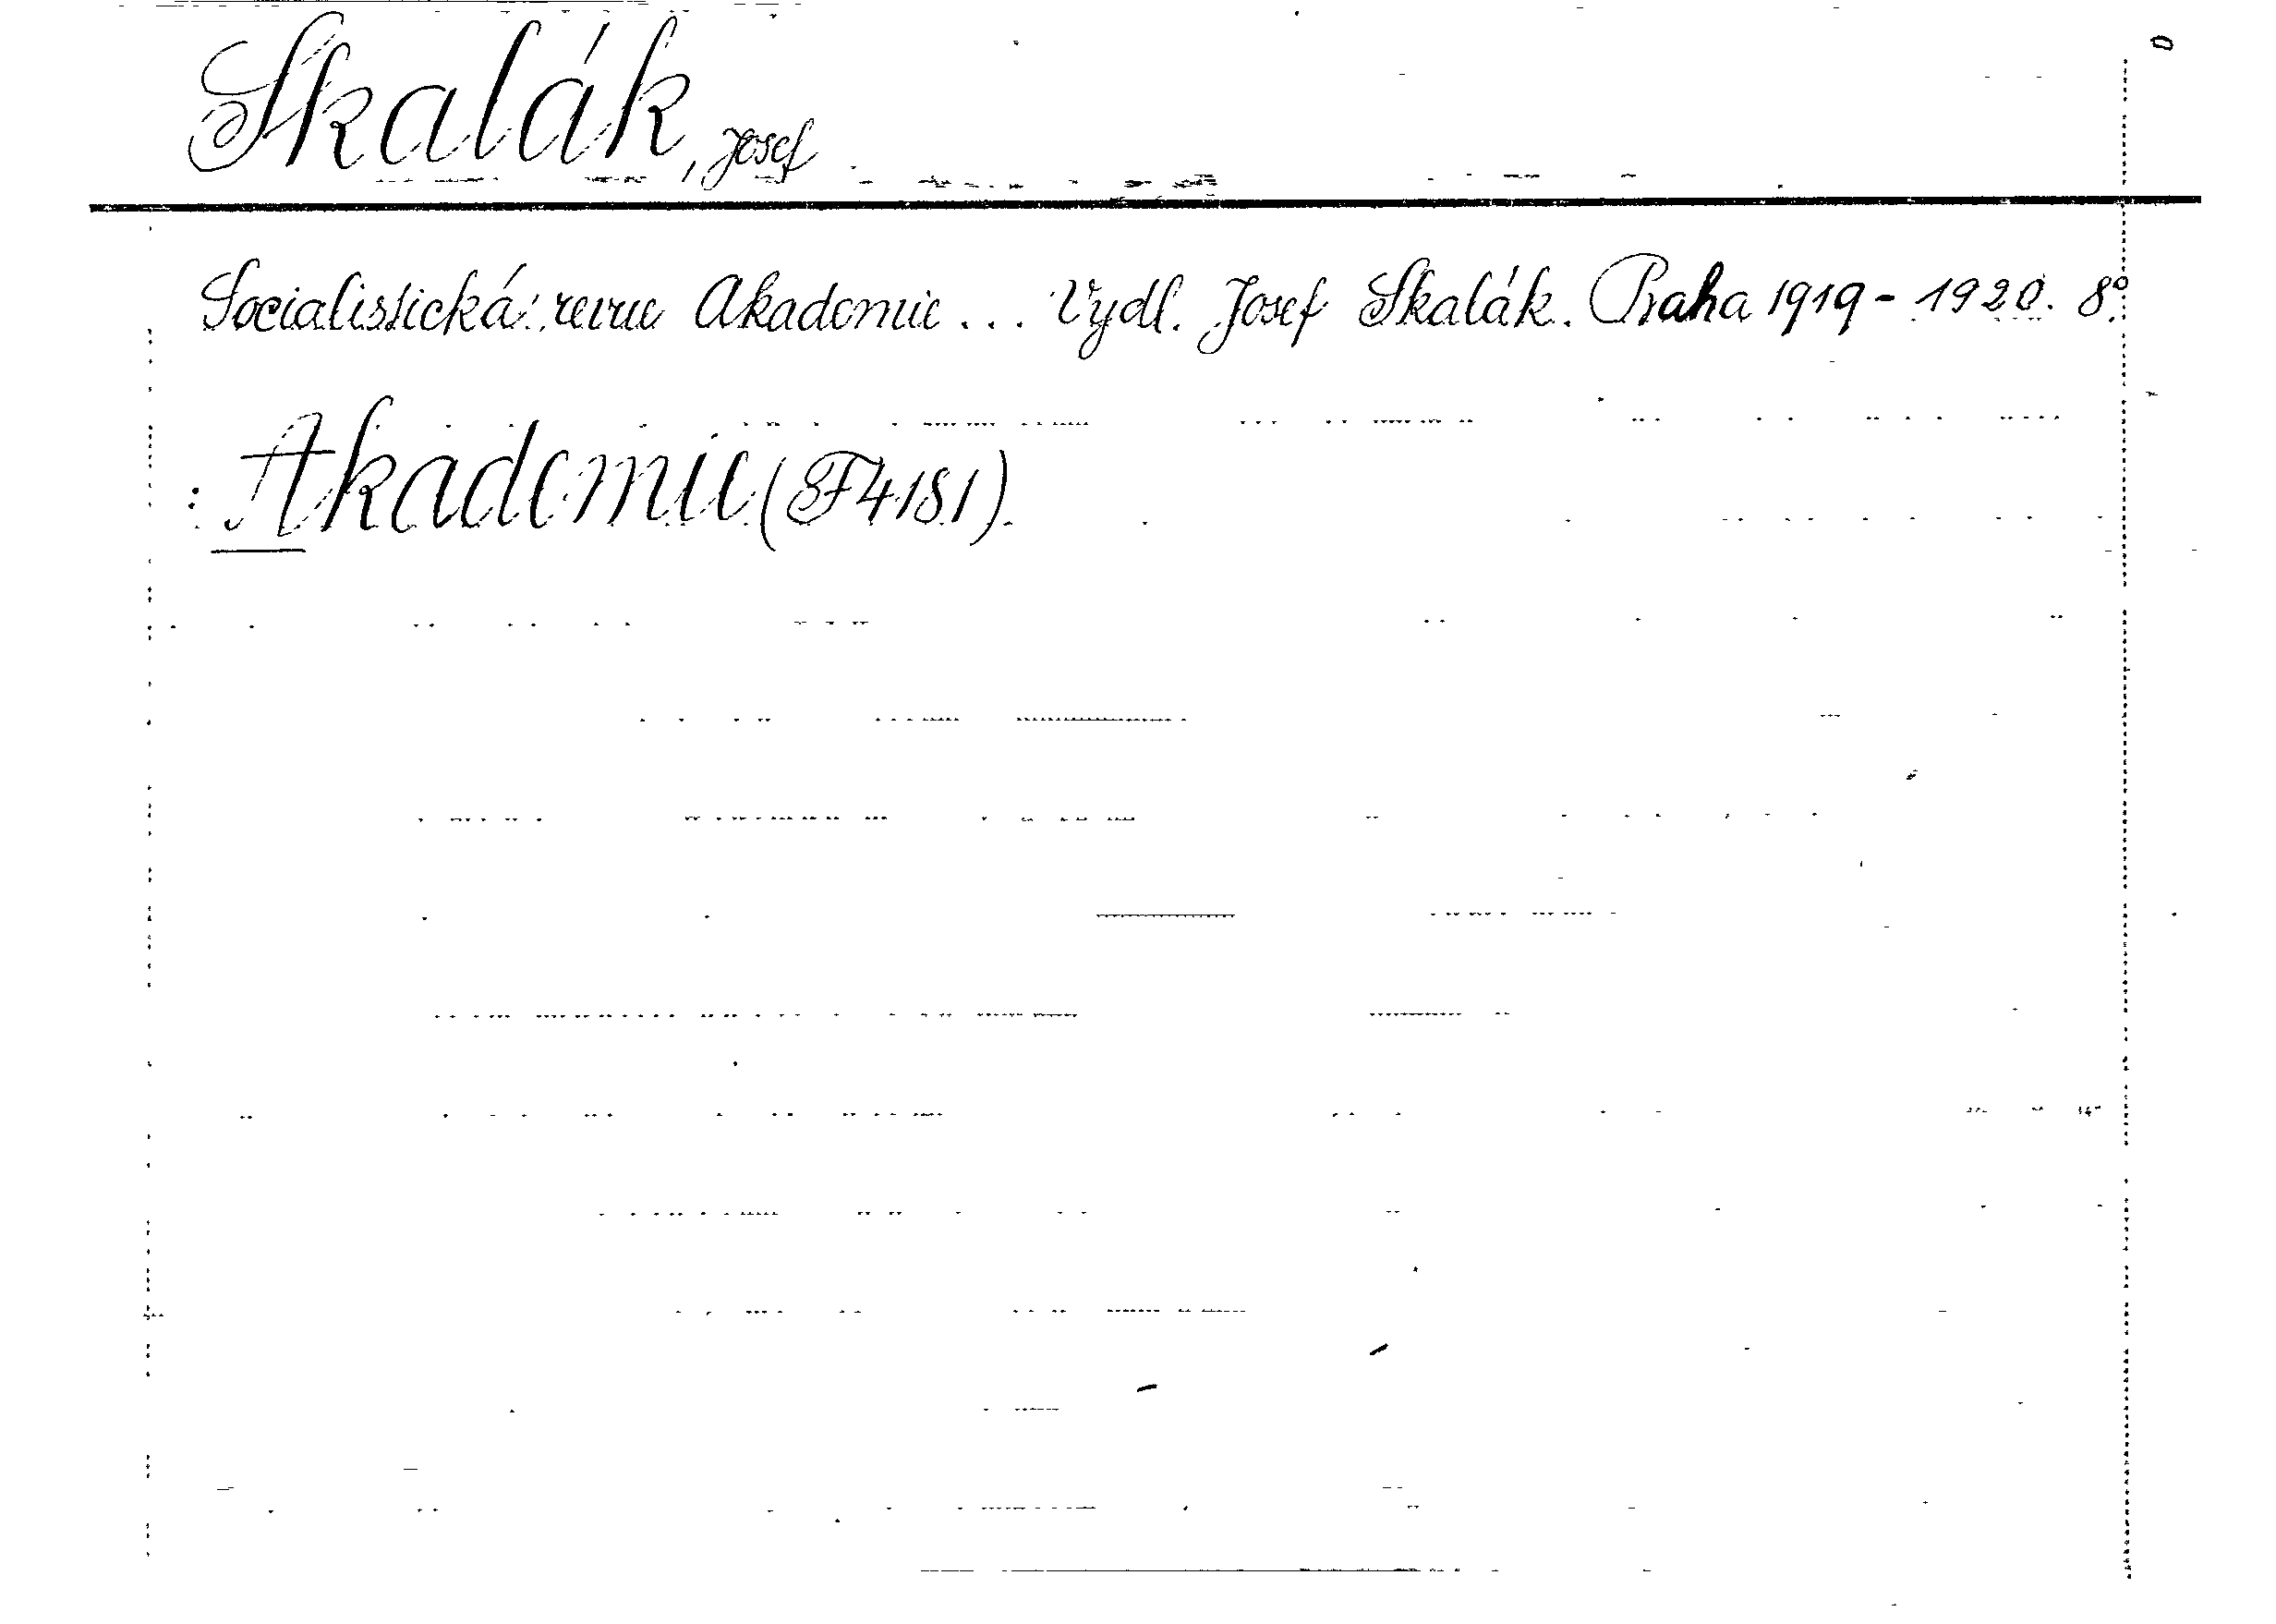 Skalák, Josef
Socialistická revue Akademie... Vydl. Josef Skalák. Praha 1919-1920. 8°.
: Akademie (8F4181).